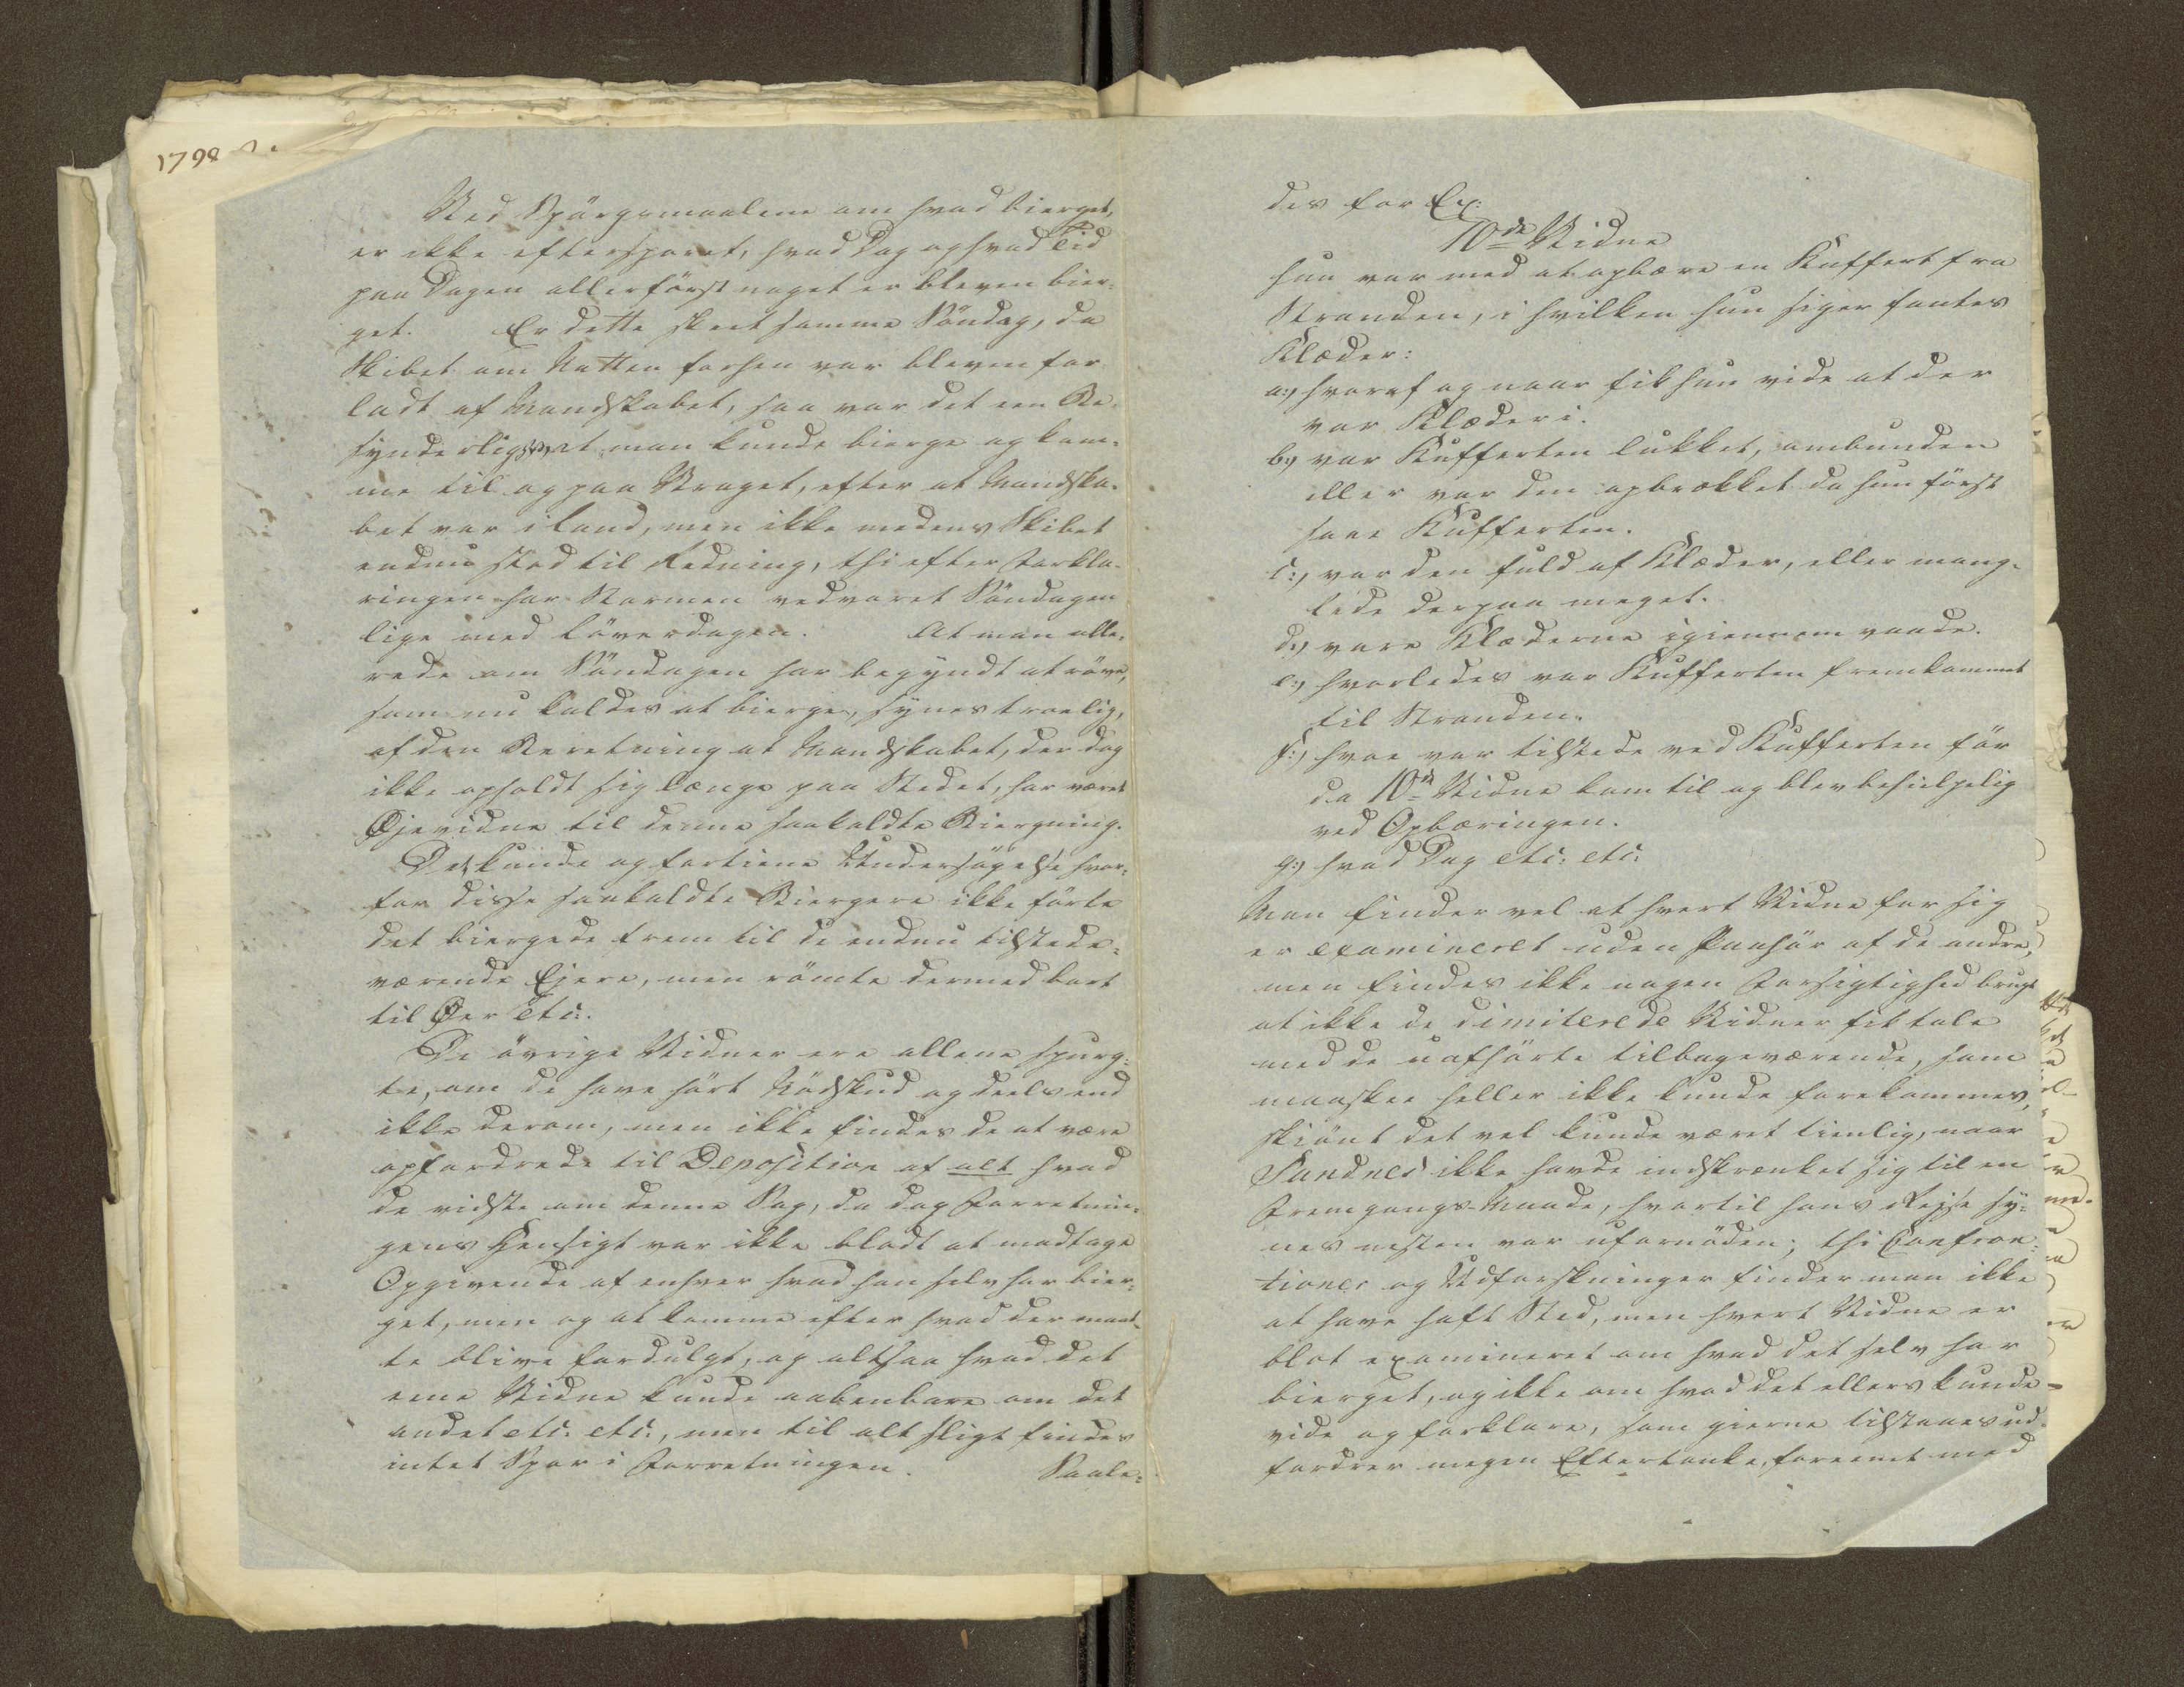 1798
Ved Spörgsmaalene om hvad bierget,
er ikke eftersporet, hvad Dag og hvad Tid
paa Dagen allerförst noget er bleven bier-
get. Er dette skeet samme Söndag, da
Skibet om Natten forhen var bleven for
ladt af Mandskabet, saa var det een Be-
synderlighed at man kunde bierge og kom-
me til og paa Vraget, efter at Mandska-
bet var i Land, men ikke medens Skibet
endnu stod til Redning, thi efter Forkla-
ringen har Stormen vedvaret Söndagen
lige med Löverdagen. At man alle-
rede om Söndagen har begyndt at röve,
som nu kaldes at bierge, synes troelig,
af den Beretning at Mandskabet, der dog
ikke opholdt sig længe paa Stedet, har været
Øjevidne til denne saakaldte Biergning.
Det kunde og fortiene Undersögelse hvor-
for disse saakaldte Biergere ikke förte
det biergede frem til de endnu tilstede-
værende Ejere, men römte dermed bort
til Øer etc:.
De övrige Vidner ere allene spurg-
te, om de have hört Nödskud og deels end
ikke derom, men ikke findes de at være
opfordrede til Deposition af alt hvad
de vidste om denne Sag, da dog Forretnin-
gens Hensigt var ikke blodt at modtage
Opgivende af enhver hvad han selv har bier-
get, men og at komme efter hvad der maat-
te blive fordulgt, og altsaa hvad det
eene Vidne kunde aabenbare om det
andet etc: etc:, men til alt sligt findes
intet Spor i Forretningen. Saale-
des for Ex:
10de Vidne
hun var med at opbære en Kuffert fra
Stranden, i hvilken hun siger fantes
Klæder:
a:, hvoraf og naar fik hun vide at der
var Klæder i.
b:, var Kufferten lukket, ombunden
eller var den opbrækket da hun först
saae Kufferten.
c:, var den fuld af Klæder, eller mang-
lede derpaa meget.
d:, vare Klæderne igiennem vaade.
e:, hvorledes var Kufferten fremkommet
til Stranden.
f:, hvoe var tilstede ved Kufferten för
da 10de Vidne kom til og blev behielpelig
ved Opbæringen.
g:, hvad Dag etc: etc:
Man finder vel at hvert Vidne for sig
er examineret uden Paahör af de andre,
men findes ikke nogen Forsigtighed brugt
at ikke de dimiterede Vidner fik tale
med de uafhörte tilbageværende, som
maaskee heller ikke kunde forekommes,
skiönt det vel kunde været tienlig, naar
Sandnes ikke havde indskrænket sig til en
Fremgangs-Maade, hvortil hans Rejse sy-
nes nesten var ufornöden; thi Confron-
tioner og Udforskninger finder man ikke
at have haft Sted, men hvert Vidne er
blot examineret om hvad det selv har
bierget, og ikke om hvad det ellers kunde
vide og forklare, som gierne tilstaaes ud-
fordrer megen Eftertanke, foreenet med